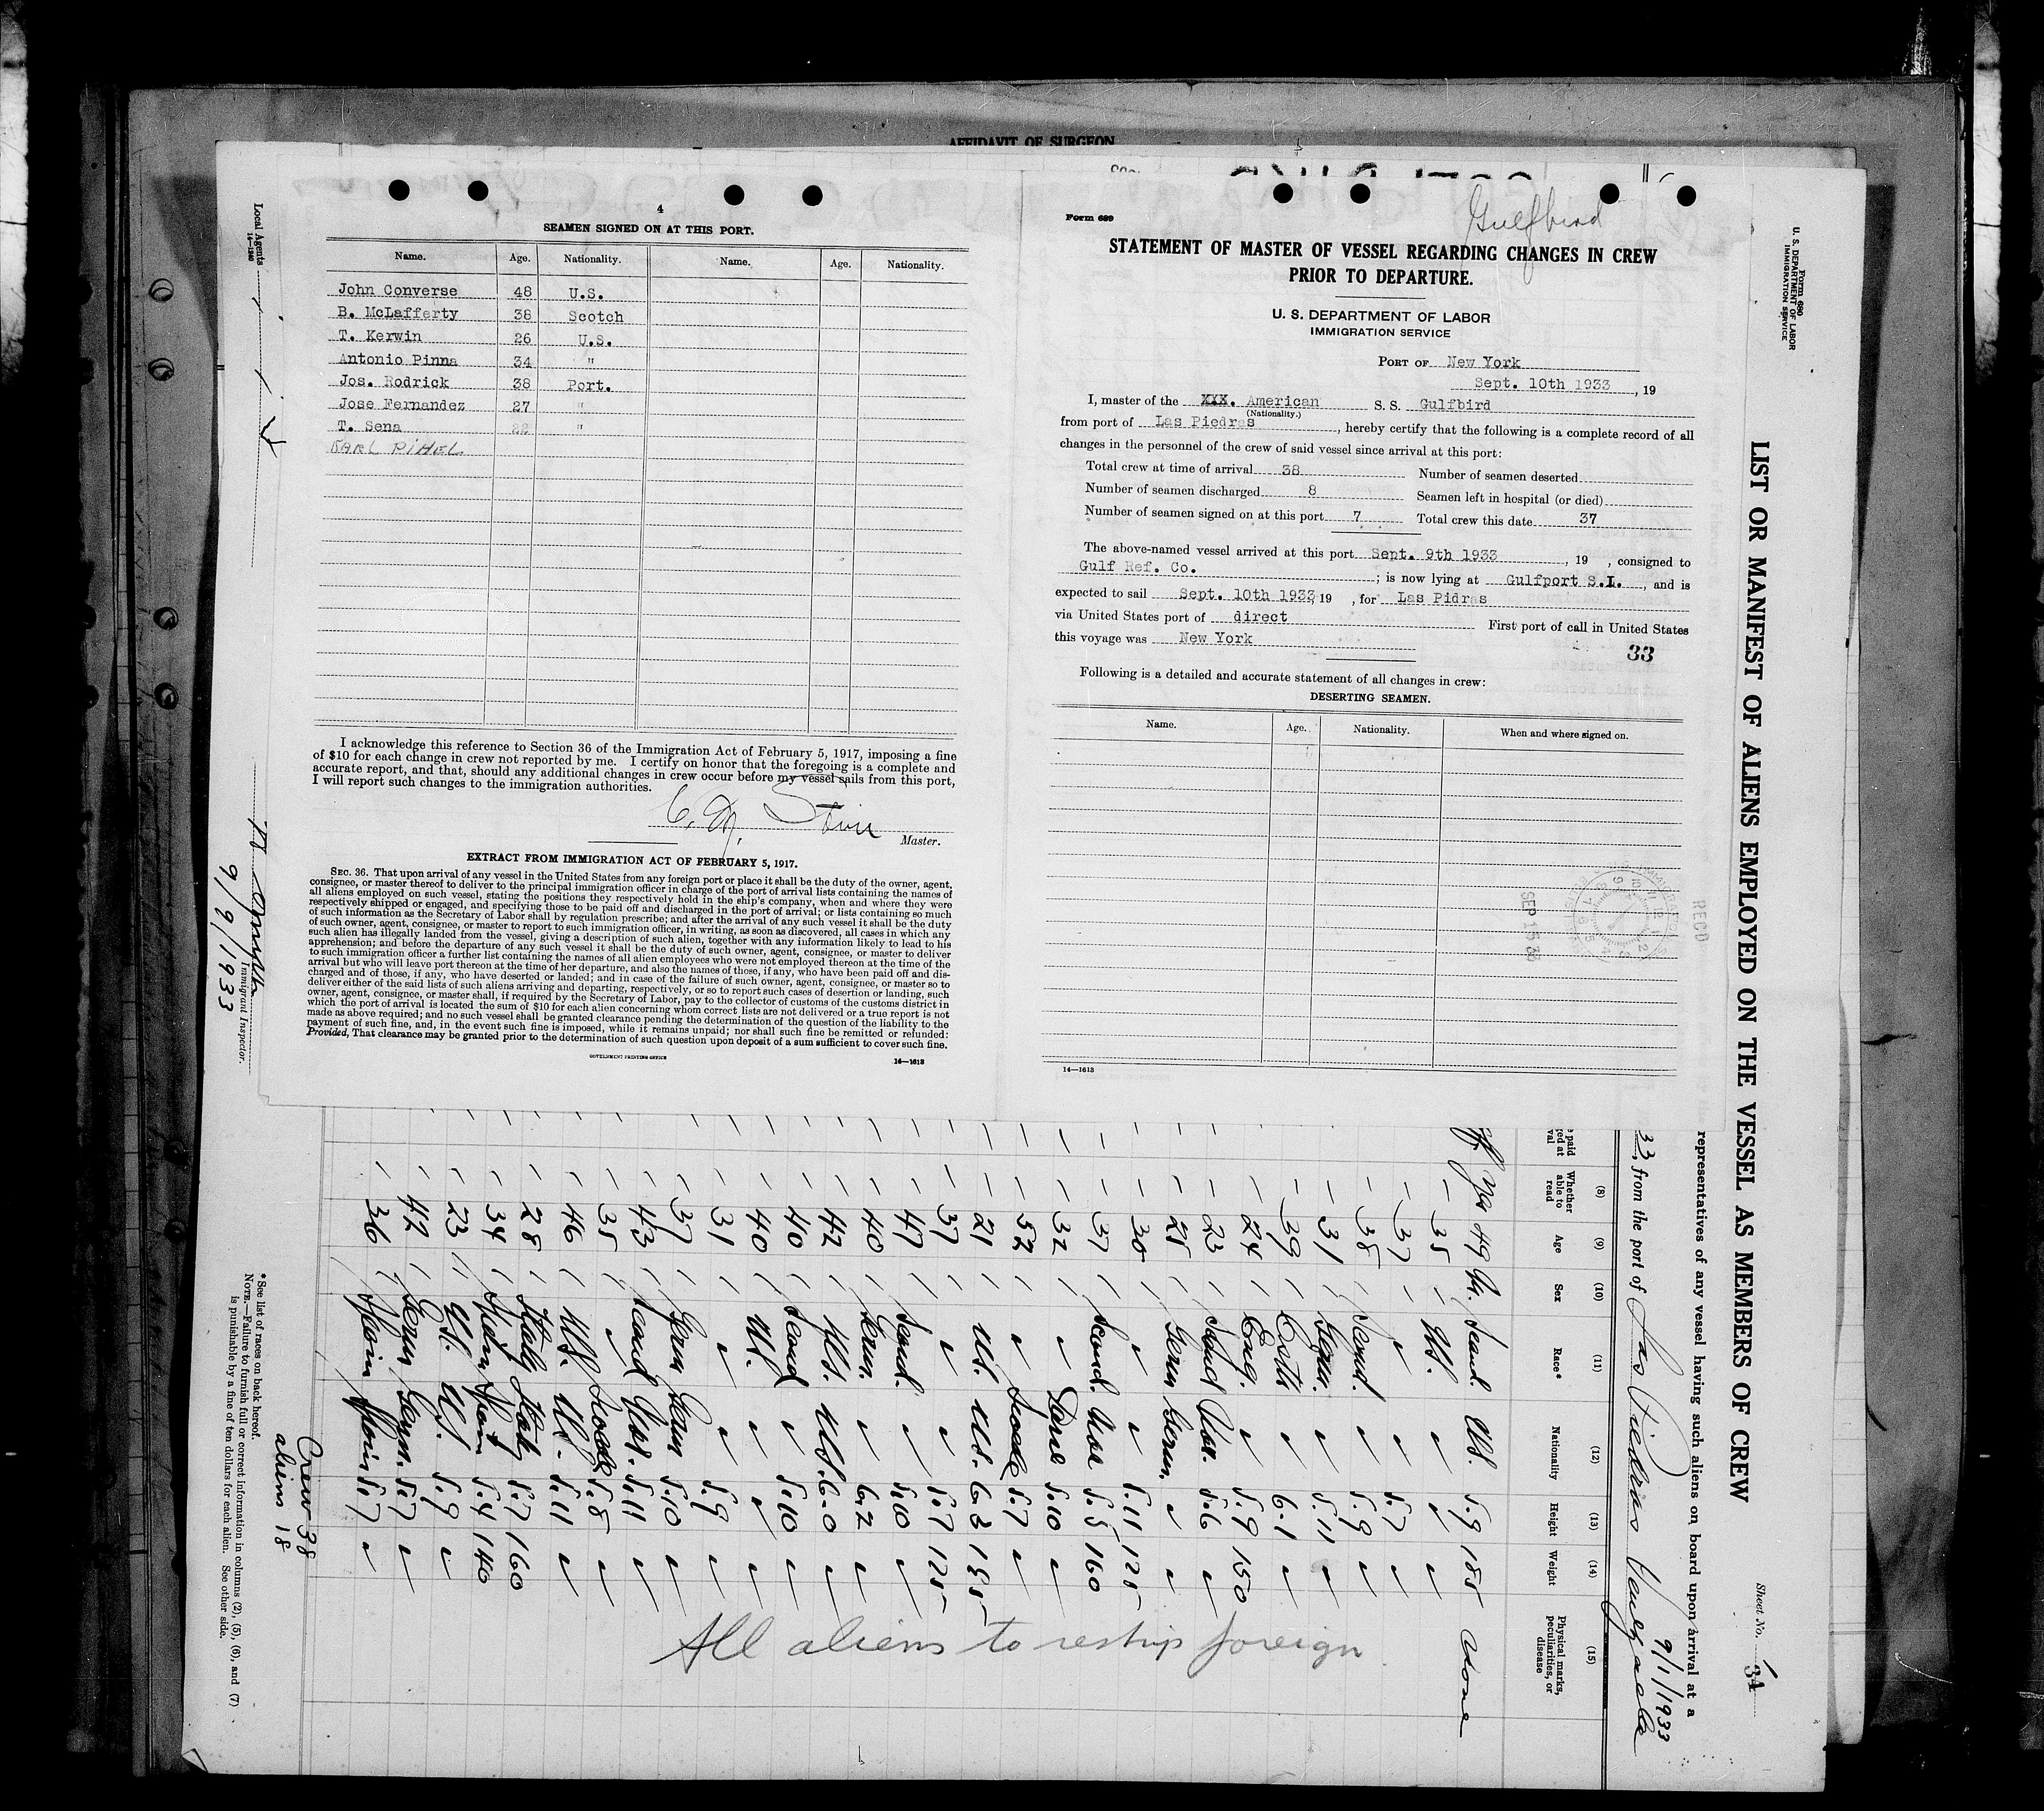 AFFIDAVIT OF SURGEON
4
SEAMEN SIGNED ON AT THIS PORT.
Name. Age. Nationality. Name. Age. Nationality.
John Converse 48 U.S.
B. McLafferty 38 Scotch
T. Kerwin 26 U.S.
Antonio Pinna 34 "
Jos. Rodrick 38 Port.
Jose Fernandez 27 "
T. Sena 22 "
KARL PIHEL
I acknowledge this reference to Section 36 of the Immigration Act of February 5, 1917, imposing a fine
of $10 for each change in crew not reported by me. I certify on honor that the foregoing is a complete and
accurate report, and that, should any additional changes in crew occur before my vessel sails from this port,
I will report such changes to the immigration authorities.
Master.
EXTRACT FROM IMMIGRATION ACT OF FEBRUARY 5, 1917.
SEC. 36. That upon arrival of any vessel in the United States from any foreign port or place it shall be the duty of the owner, agent,
consignee, or master thereof to deliver to the principal immigration officer in charge of the port of arrival lists containing the names of
all aliens employed on such vessel, stating the positions they respectively hold in the ship's company, when and where they were
respectively shipped or engaged, and specifying those to be paid off and discharged in the port of arrival; or lists containing so much
of such information as the Secretary of Labor shall by regulation prescribe; and after the arrival of any such vessel it shall be the duty
of such owner, agent, consignee, or master to report to such immigration officer, in writing, as soon as discovered, all cases in which any
such alien has illegally landed from the vessel, giving a description of such alien, together with any information likely to lead to his
apprehension; and before the departure of any such vessel it shall be the duty of such owner, agent, consignee, or master to deliver
to such immigration officer a further list containing the names of all alien employees who were not employed thereon at the time of the
arrival but who will leave port thereon at the time of her departure, and also the names of those, if any, who have been paid off and dis-
charged and of those, if any, who have deserted or landed; and in case of the failure of such owner, agent, consignee, or master so to
deliver either of the said lists of such aliens arriving and departing, respectively, or so to report such cases of desertion or landing, such
owner, agent, consignee, or master shall, if required by the Secretary of Labor, pay to the collector of customs of the customs district in
which the port of arrival is located the sum of $10 for each alien concerning whom correct lists are not delivered or a true report is not
made as above required; and no such vessel shall be granted clearance pending the determination of the question of the liability to the
payment of such fine, and, in the event such fine is imposed, while it remains unpaid; nor shall such fine be remitted or refunded:
Provided, That clearance may be granted prior to the determination of such question upon deposit of a sum sufficient to cover such fine.
GOVERNMENT PRINTING OFFICE
14—1613
Gulfbird
Form 689
STATEMENT OF MASTER OF VESSEL REGARDING CHANGES IN CREW
PRIOR TO DEPARTURE.
U. S. DEPARTMENT OF LABOR
IMMIGRATION SERVICE
PORT OF New York
Sept. 10th 1933, 19
I, master of the XXX. American S. S. Gulfbird
(Nationality.)
from port of Las Piedras, hereby certify that the following is a complete record of all
changes in the personnel of the crew of said vessel since arrival at this port:
Total crew at time of arrival 38 Number of seamen deserted
Number of seamen discharged 8 Seamen left in hospital (or died)
Number of seamen signed on at this port 7 Total crew this date 37
The above-named vessel arrived at this port Sept. 9th 1933, 19 , consigned to
Gulf Ref. Co. ; is now lying at Gulfport S.I. , and is
expected to sail Sept. 10th 1933 19 , for Las Pidras
via United States port of direct First port of call in United States
this voyage was New York
33
Following is a detailed and accurate statement of all changes in crew:
DESERTING SEAMEN.
Name. Age. Nationality. When and where signed on.
REC'D
SEP 15 33
14—1613
Form 680
U. S. DEPARTMENT OF LABOR
IMMIGRATION SERVICE
LIST OR MANIFEST OF ALIENS EMPLOYED ON THE VESSEL AS MEMBERS OF CREW
Sheet No. 1
34
representatives of any vessel having such aliens on board upon arrival at a
33, from the port of Las Piedras Venezuela
9/1/1933
(8) (9) (10) (11) (12) (13) (14) (15)
Whether able to read
Age
Sex
Race*
Nationality
Height
Weight
Physical marks, peculiarities, or disease
yes 49 M. Scand. US. 5.9 185 None
35 US.
37 5.7
38 Scand. 5.9
31 Germ. 5.11
39 6.1
24 Eng. 5.9 150
23 Scand Nor. 5.6
25 Germ Germ.
30 5.11 125
37 Scand. Nor 5.5 160
32 Dane 5.10
52 5.7
21 US. US. 6-3 195
37 5.7 125
47 Scand. 5.10
40 Germ. 6-2
42 US. US. 6-0
40 Scand 5.10
40 US.
31 5.9
37 Germ Germ 5.10
43 Scand Nor. 5.11
35 5.8
46 US. US. 5.11
28 Italy Italy 5.7 160
34 Spain Spain 5.4 140
23 US. US. 5.9
42 Germ Germ. 5.7
36 Spain Spain 5.7
All aliens to reship foreign
Crew 38
aliens 18
*See list of races on back hereof.
NOTE.—Failure to furnish full or correct information in columns (2), (5), (6), and (7)
is punishable by a fine of ten dollars for each alien. See other side.
Local Agents
14—1240
Immigrant Inspector.
9/9/1933